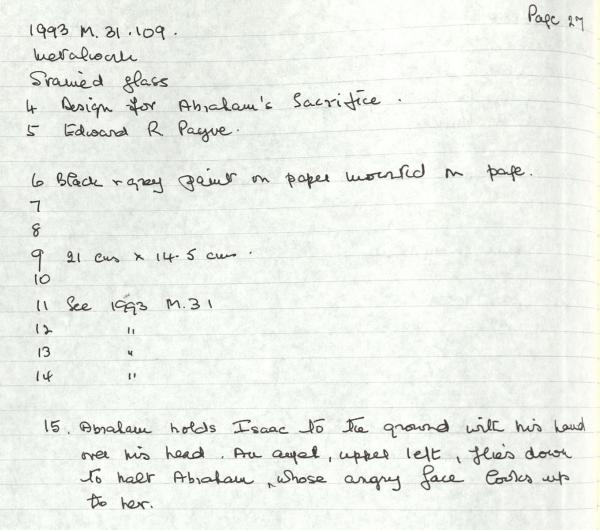 Page 27
1993 M.31.109.
Metalwork
Stained glass
4 Design for Abraham's Sacrifice.
5 Edward R Payne.
6 Black & grey paint on paper mounted on page.
7
8
9 21 cms x 14.5 cms.
10
11 See 1993 M.31
12 "
13 "
14 "
15. Abraham holds Isaac to the ground with his hand
over his head. An angel, upper left, flies down
to halt Abraham, whose angry face looks up
to her.